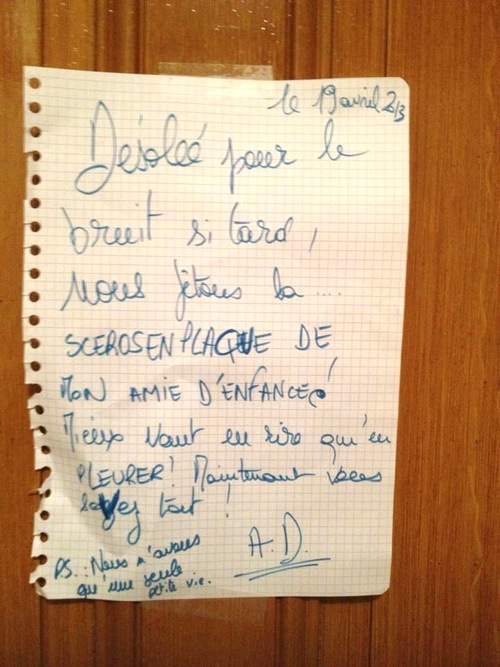 le 19 avril 213
Désoleé pour le
bruit si tard,
Nous fêtons la ....
SCEROSENPLAQUE DE
MON AMIE D'ENFANCE!
Mieux vaut en rire qu'en
PLEURER! Maintenant vous
savez tout !
A.D.
PS.: Nous n'avons
qu'une seule
petite vie.